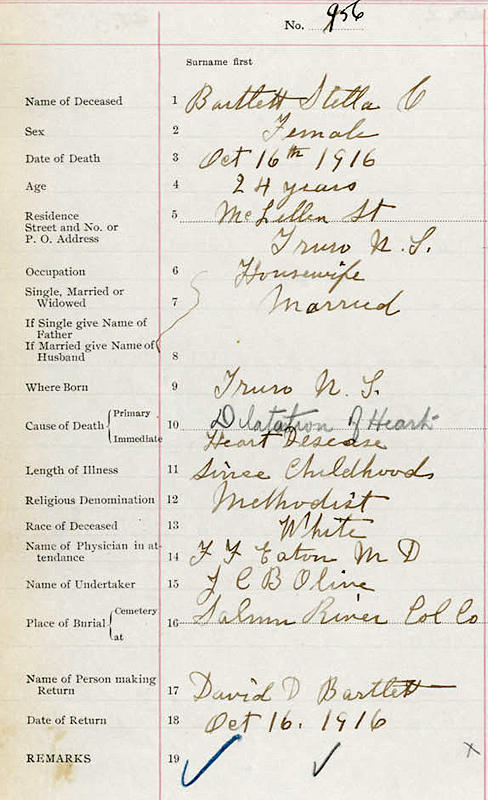 No. 956
Surname first
Name of Deceased 1 Bartlett Stella C
Sex 2 Female
Date of Death 3 Oct 16th 1916
Age 4 24 years
Residence 5 McLellen St
Street and No. or
P. O. Address Truro N. S.
Occupation 6 Housewife
Single, Married or
Widowed 7 Married
If Single give Name of
Father
If Married give Name of
Husband 8
Where Born 9 Truro N. S.
Cause of Death Primary 10 Dilatation of Heart
Immediate Heart Desease
Length of Illness 11 Since Childhood
Religious Denomination 12 Methodist
Race of Deceased 13 White
Name of Physician in at-
tendance 14 F F Eaton M D
Name of Undertaker 15 J C B Olive
Place of Burial Cemetery 16 Salmon River Col Co
at
Name of Person making
Return 17 David D Bartlett
Date of Return 18 Oct 16. 1916
REMARKS 19